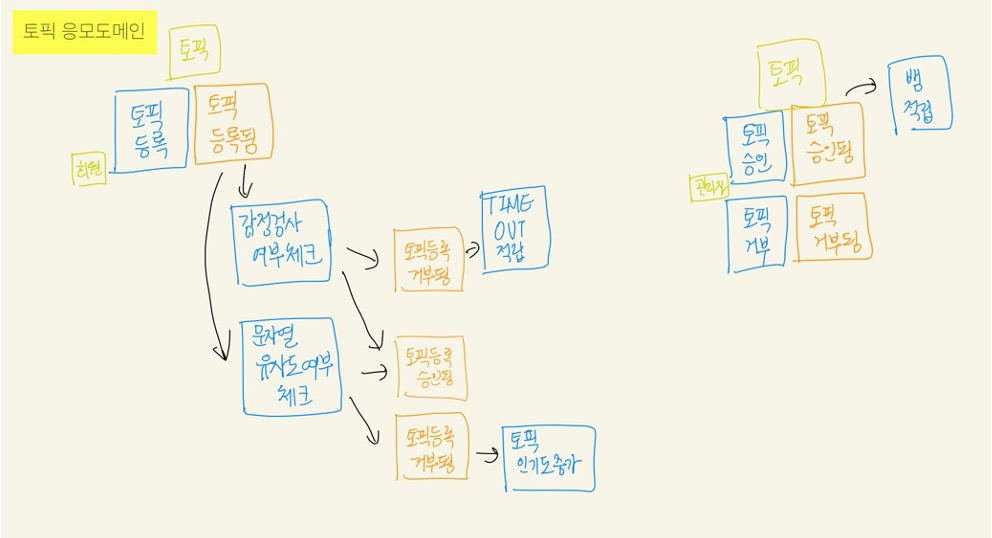 토픽 응모도메인
토픽
토픽
등록
토픽
등록됨
회원
감정검사
여부체크
토픽등록
거부됨
TIME
OUT
적립
문자열
유사도여부
체크
토픽등록
승인됨
토픽등록
거부됨
토픽
인기도증가
토픽
토픽
승인
토픽
승인됨
관리자
토픽
거부
토픽
거부됨
뱀
적립